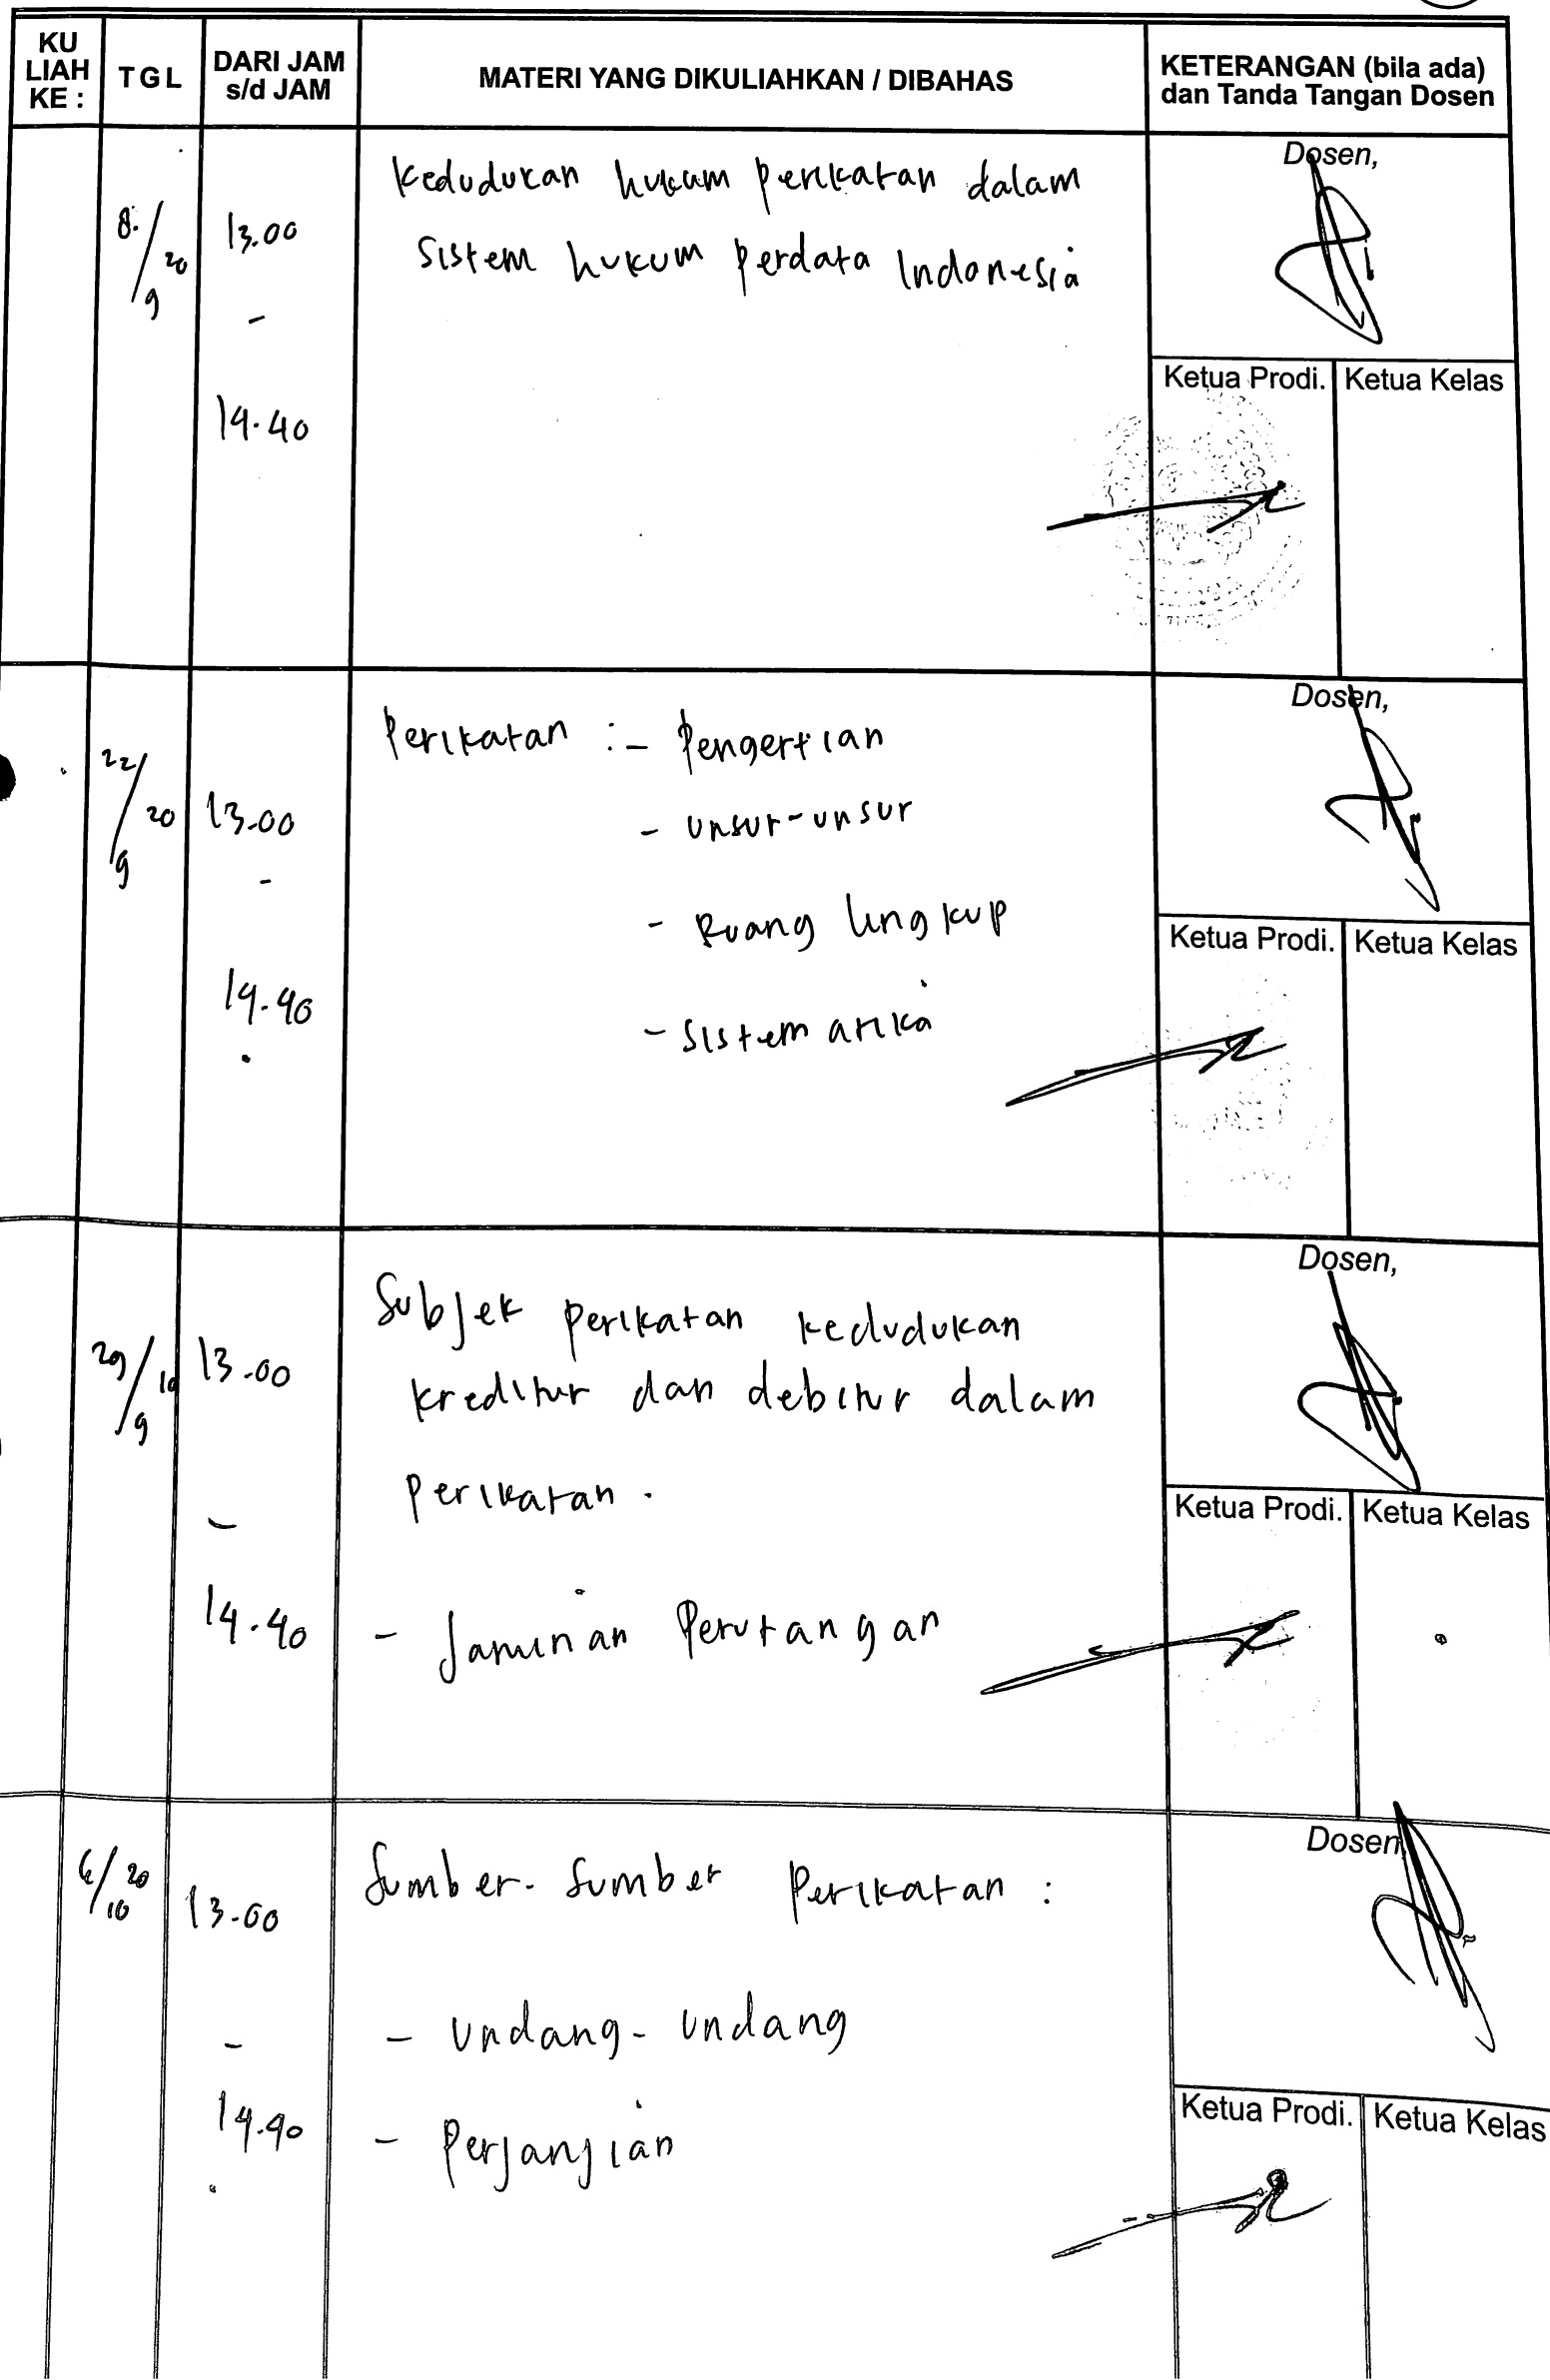 KU
LIAH
KE :
TGL
DARI JAM
s/d JAM
MATERI YANG DIKULIAHKAN / DIBAHAS
KETERANGAN (bila ada)
dan Tanda Tangan Dosen
8/9 20
13.00
-
14.40
Kedudukan hukum perikatan dalam
Sistem hukum perdata Indonesia
Dosen,
Ketua Prodi. Ketua Kelas
22/9 20
13.00
-
14.40
Perikatan : - Pengertian
- Unsur-unsur
- Ruang lingkup
- Sistematika
Dosen,
Ketua Prodi. Ketua Kelas
29/9
13.00
-
14.40
Subjek perikatan kedudukan
kreditur dan debitur dalam
perikatan.
- Jaminan Perutangan
Dosen,
Ketua Prodi. Ketua Kelas
6/10 20
13.00
-
14.40
Sumber-Sumber Perikatan :
- Undang-undang
- Perjanjian
Dosen,
Ketua Prodi. Ketua Kelas